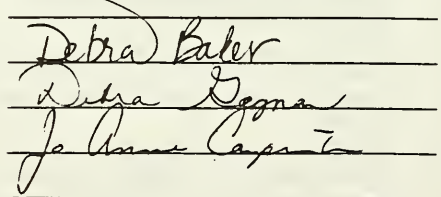 Debra Baker
Debra
Jo Anne Carpenter